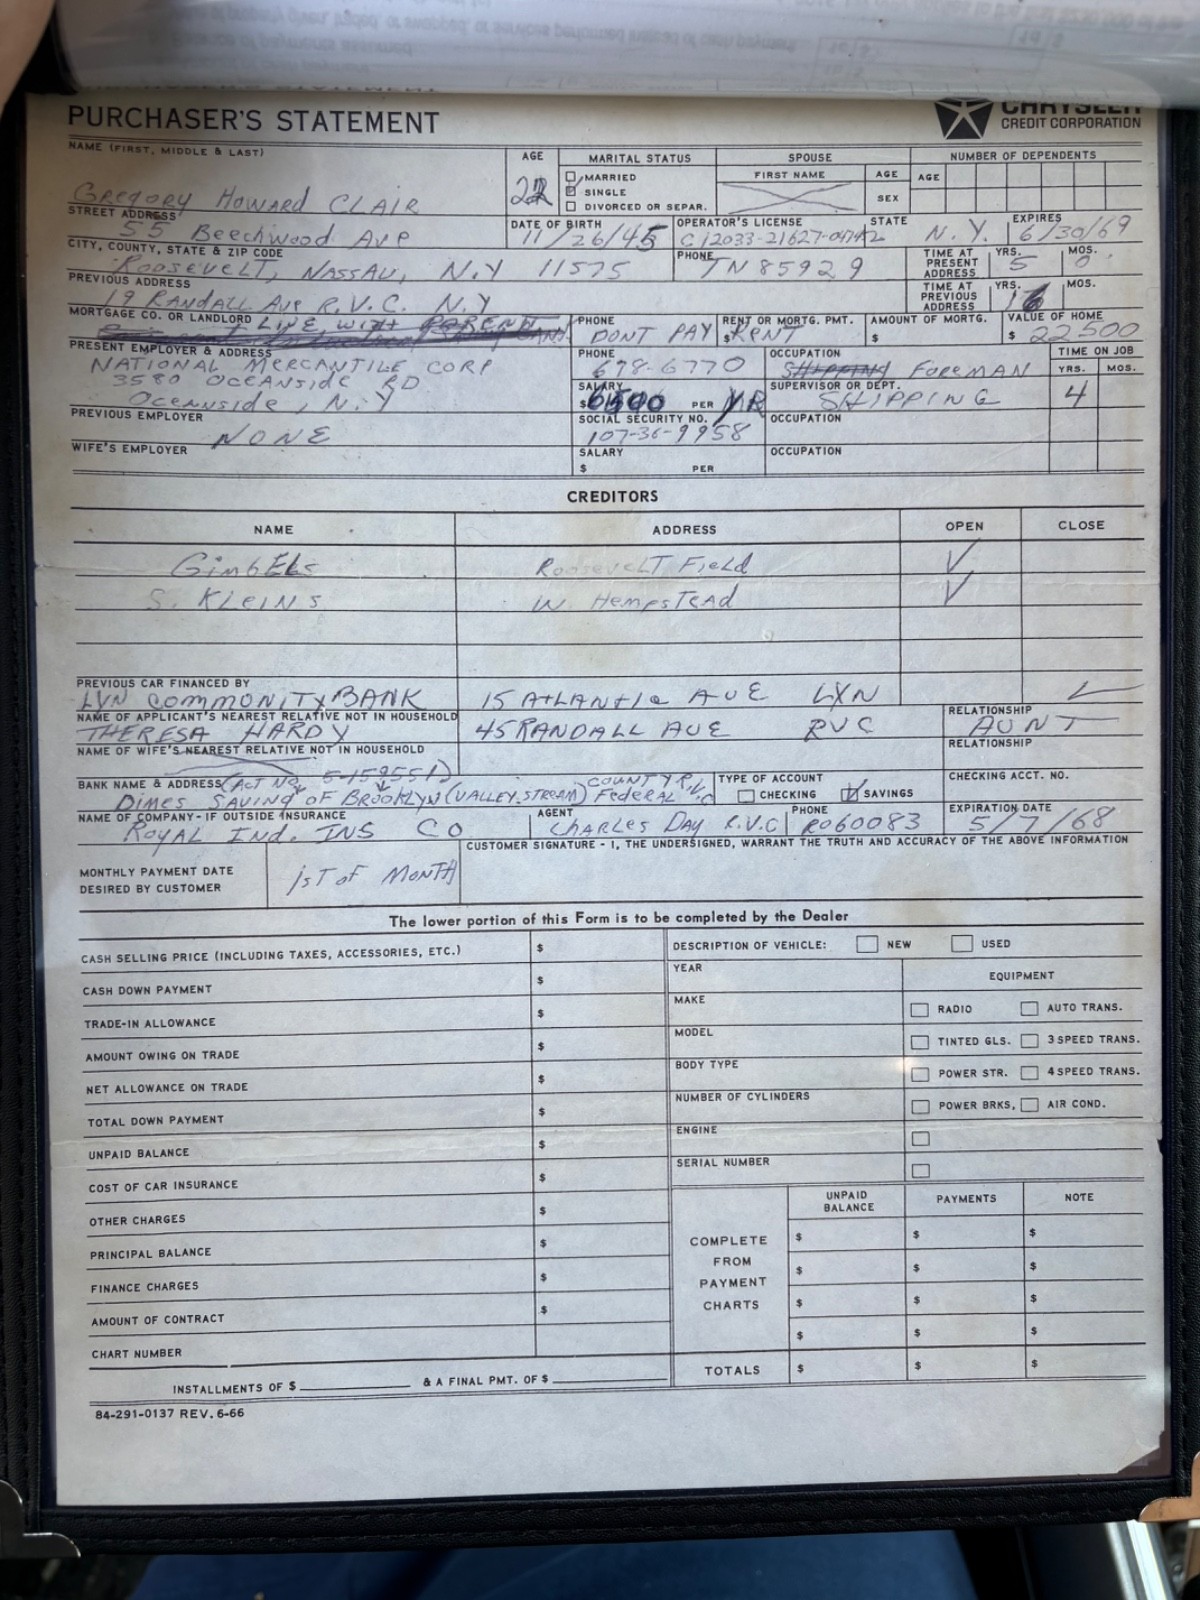 PURCHASER'S STATEMENT
CHRYSLER
CREDIT CORPORATION
NAME (FIRST, MIDDLE & LAST)
Gregory Howard CLAIR
AGE
22
MARITAL STATUS
MARRIED
SINGLE
DIVORCED OR SEPAR.
SPOUSE
FIRST NAME
AGE
SEX
NUMBER OF DEPENDENTS
AGE
STREET ADDRESS
55 Beechwood Ave
DATE OF BIRTH
11/26/45
OPERATOR'S LICENSE
STATE
EXPIRES
N.Y.
6/30/69
CITY, COUNTY, STATE & ZIP CODE
Roosevelt, NASSAU, N.Y 11575
PHONE
TN 85929
TIME AT PRESENT ADDRESS
YRS.
5
MOS.
0
PREVIOUS ADDRESS
19 RANDALL Ave R.V.C. N.Y
TIME AT PREVIOUS ADDRESS
YRS.
MOS.
MORTGAGE CO. OR LANDLORD
LIVE WITH PARENT
PHONE
DONT PAY
RENT OR MORTG. PMT.
$ RENT
AMOUNT OF MORTG.
$
VALUE OF HOME
$ 22500
PRESENT EMPLOYER & ADDRESS
NATIONAL MERCANTILE CORP
3580 OCEANSIDE RD
OCEANSIDE, N.Y
PHONE
678-6770
OCCUPATION
SHIPPING FOREMAN
TIME ON JOB
YRS.
MOS.
4
SALARY
$ PER YR
SUPERVISOR OR DEPT.
SHIPPING
PREVIOUS EMPLOYER
NONE
SOCIAL SECURITY NO.
107-36-9958
OCCUPATION
WIFE'S EMPLOYER
SALARY
$ PER
OCCUPATION
CREDITORS
NAME
ADDRESS
OPEN
CLOSE
GimbEls
RoosevelT Field
S. KleinS
W. HempsTead
PREVIOUS CAR FINANCED BY
LYN COMMONITY BANK
15 ATLANTIC AVE LYN
NAME OF APPLICANT'S NEAREST RELATIVE NOT IN HOUSEHOLD
THERESA HARDY
45 RANDALL AVE RVC
RELATIONSHIP
AUNT
NAME OF WIFE'S NEAREST RELATIVE NOT IN HOUSEHOLD
RELATIONSHIP
BANK NAME & ADDRESS (Act No. 5-159551)
Dimes SAVING OF BROOKLYN (VALLEY STREAM) COUNTY Federal
TYPE OF ACCOUNT
CHECKING
SAVINGS
CHECKING ACCT. NO.
NAME OF COMPANY - IF OUTSIDE INSURANCE
Royal Ind. INS CO
AGENT
Charles Day R.V.C
PHONE
RO60083
EXPIRATION DATE
5/7/68
MONTHLY PAYMENT DATE DESIRED BY CUSTOMER
1sT of MONTH
CUSTOMER SIGNATURE - I, THE UNDERSIGNED, WARRANT THE TRUTH AND ACCURACY OF THE ABOVE INFORMATION
The lower portion of this Form is to be completed by the Dealer
CASH SELLING PRICE (INCLUDING TAXES, ACCESSORIES, ETC.) $
CASH DOWN PAYMENT $
TRADE-IN ALLOWANCE $
AMOUNT OWING ON TRADE $
NET ALLOWANCE ON TRADE $
TOTAL DOWN PAYMENT $
UNPAID BALANCE $
COST OF CAR INSURANCE $
OTHER CHARGES $
PRINCIPAL BALANCE $
FINANCE CHARGES $
AMOUNT OF CONTRACT $
CHART NUMBER
INSTALLMENTS OF $ & A FINAL PMT. OF $
DESCRIPTION OF VEHICLE: NEW USED
YEAR
MAKE
MODEL
BODY TYPE
NUMBER OF CYLINDERS
ENGINE
SERIAL NUMBER
EQUIPMENT
RADIO AUTO TRANS.
TINTED GLS. 3 SPEED TRANS.
POWER STR. 4 SPEED TRANS.
POWER BRKS, AIR COND.
COMPLETE
FROM
PAYMENT
CHARTS
UNPAID BALANCE
PAYMENTS
NOTE
$ $ $
$ $ $
$ $ $
$ $ $
TOTALS $ $ $
84-291-0137 REV. 6-66